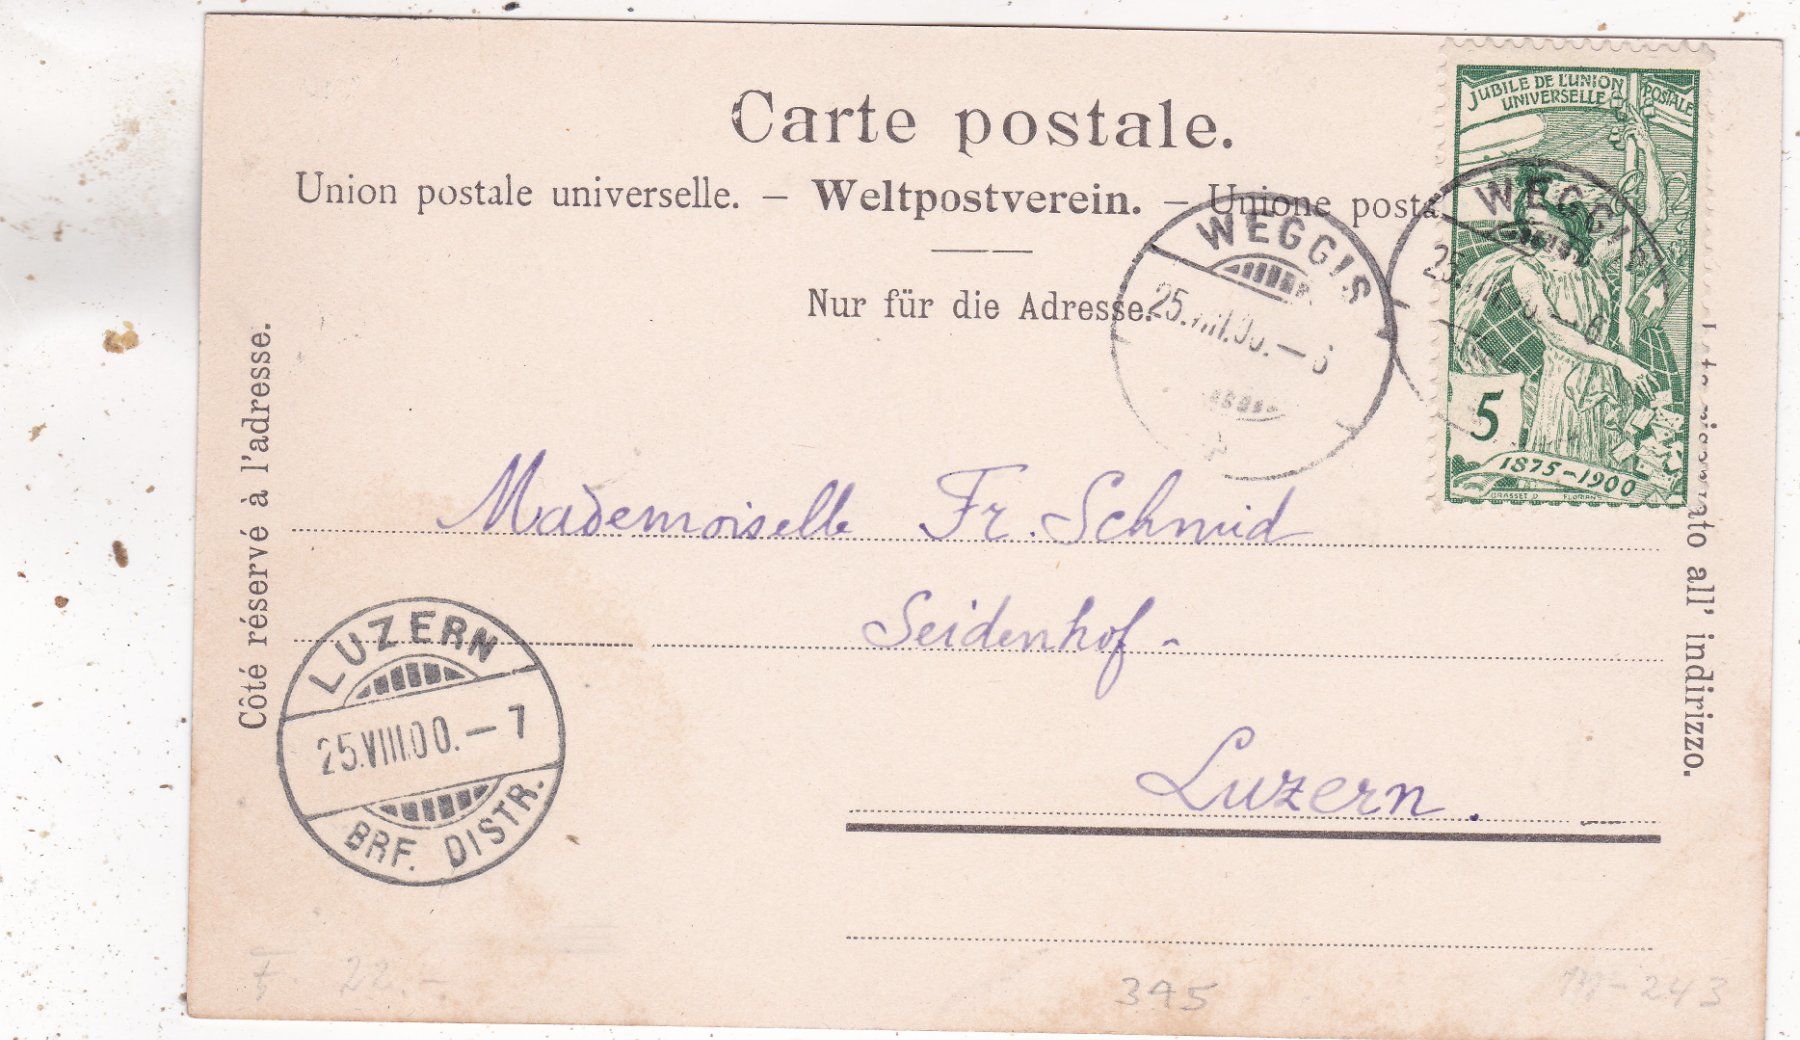 Carte postale.
Union postale universelle. — Weltpostverein. — Unione posta
Nur für die Adresse.
Côté réservé à l'adresse.
all' indirizzo.
JUBILÉ DE L'UNION POSTALE
UNIVERSELLE
5
1875-1900
GRASSET D FLORIAN
WEGGIS
25.VIII.00.—6
WEGGIS
25.VIII.00.—6
Mademoiselle Fr. Schmid
Seidenhof-
Luzern.
LUZERN
25.VIII.00.—7
BRF. DISTR.
F. 22.-
395
243